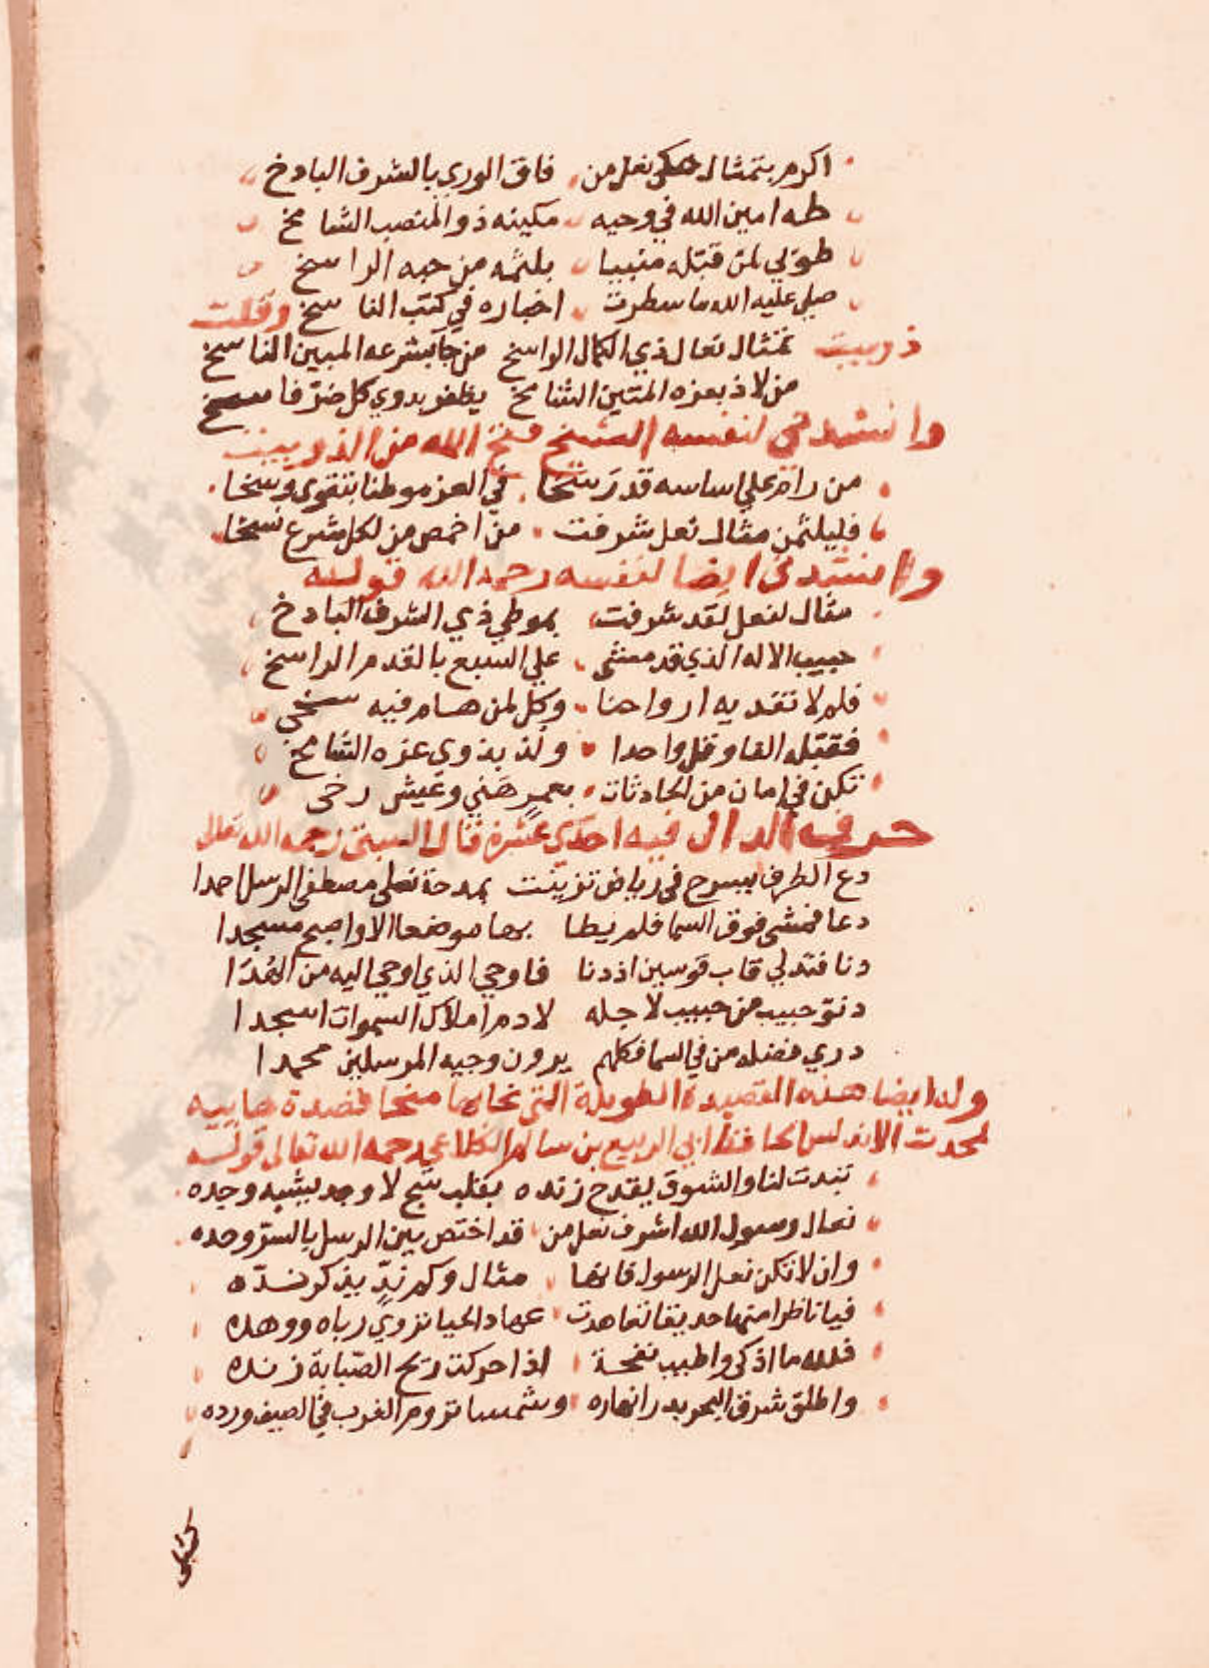 اكرم بتمثال حكى نعل من فاق الورى بالشرف الباذخ
طه امين الله في وحيه مكينه ذو المنصب الشامخ
طوبي لمن قبّله منيبا بلثمه من حبه الراسخ
صلى عليه الله ما سطرت اخباره في كتب الناسخ وقلت
تمثال نعال ذي الكمال الراسخ من جا بشرعه المبين الناسخ
من لاذ بعزه المتين الشامخ يظفر بدوي كل ضرّ فاسخ
وانشدني لنفسه الشيخ فتح الله من
من رام علي اساسه قد رسخا في العز موطنا بتقوي وسخا
فليلثمن مثال نعل شرفت من اخمص من لكل شرع نسخا
وانشدني ايضا لنفسه رحمه الله قوله
مثال لنعل لقد شرفت بموطي ذي الشرف الباذخ
حبيب الاله الذي قد مشى علي السبع بالقدم الراسخ
فلم لا تفديه ارواحنا وكل لمن هام فيه سخي
فقبّله الفا وقل واحدا ولذ بذوي عزه الشامخ
تكن في امان من الحادثات بعمرٍ هَني وعيش رخى
حرف الدال فيه احدى عشرة قال السبتي رحمه الله تعالى
دع الطرف يسرح في رياض تزينت بمدحة نعلى مصطفى الرسل احمدا
دعا فمشى فوق السما فلم يطا بها موضعا الا واصبح مسجدا
دنا فتدلي قاب قوسين اذ دنا فاوحي الذي اوحي اليه من الهُدَا
دنوّ حبيب من حبيب لاجله لادم املاك السموات اسجدا
دري فضله من في السما فكلهم يرون وجيه المرسلين محمدا
وله ايضا هذه القصيدة الطويلة التي نحا بها منحا قصدة
لمحدث الاندلس الحافظ ابي الربيع بن سالم الكلاعي رحمه الله تعالى قوله
تبدت لنا والشوق يقدح زنده بقلب شج لا وجد يشبه وجده
نعال رسول الله اشرف نعل من قد اختص بين الرسل بالستر وحده
وان لا تكن نعل الرسول فانها مثال وكم ندّ بذكر ندّه
فيا ناظرا منها حديقا تعاهدت عهاد الحيا تروي رباه ووهده
فلله ما اذكى واطيب نفحة اذا حركت ريح الصبابة زنده
واطلق شرق البحو بدرا نهاره وشمسا تروم الغرب في الصيف ورده